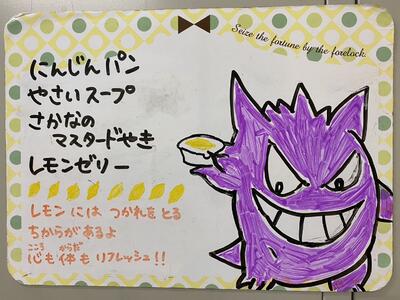 Seize the fortune by the forelock.
にんじんパン
やさいスープ
さかなの
マスタードやき
レモンゼリー
レモンには つかれをとる
ちからがあるよ
こころ からだ
心も体も リフレッシュ!!